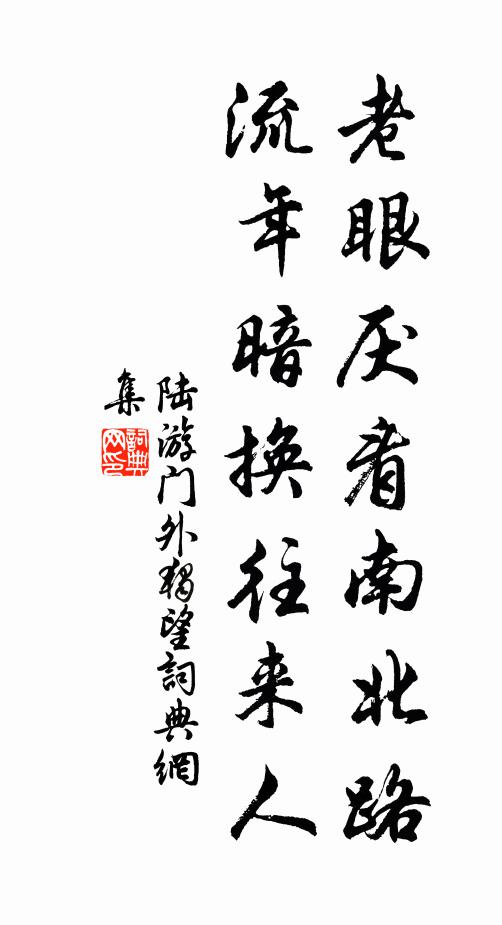 老眼厌看南北路
流年暗换往来人
陆游门外独望詞典網
集
詞典
网印